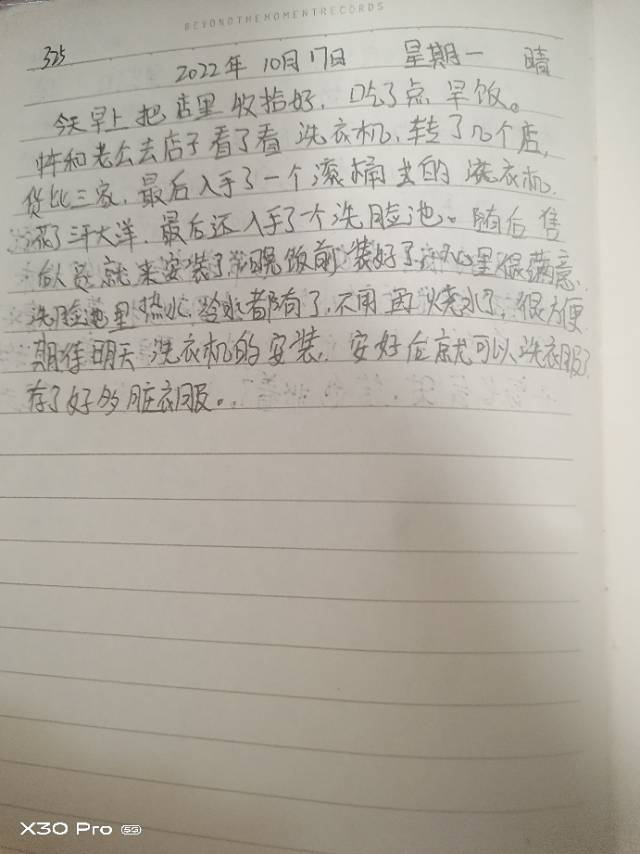 BEYONDTHEMOMENTRECORDS
325
2022年 10月17日 星期一 晴
今天早上把店里收拾好，吃了点早饭。
和老公去店子看了看洗衣机，转了几个店，
货比三家，最后入手了一个滚桶式的洗衣机，
花了三千大洋，最后还入手了个洗脸池。随后售
后人员就来安装了，晚饭前装好了，心里很满意，
洗脸池里热水，冷水都有了，不用再烧水了，很方便
期待明天洗衣机的安装，安好后就可以洗衣服了
存了好多脏衣服。
X30 Pro 5G